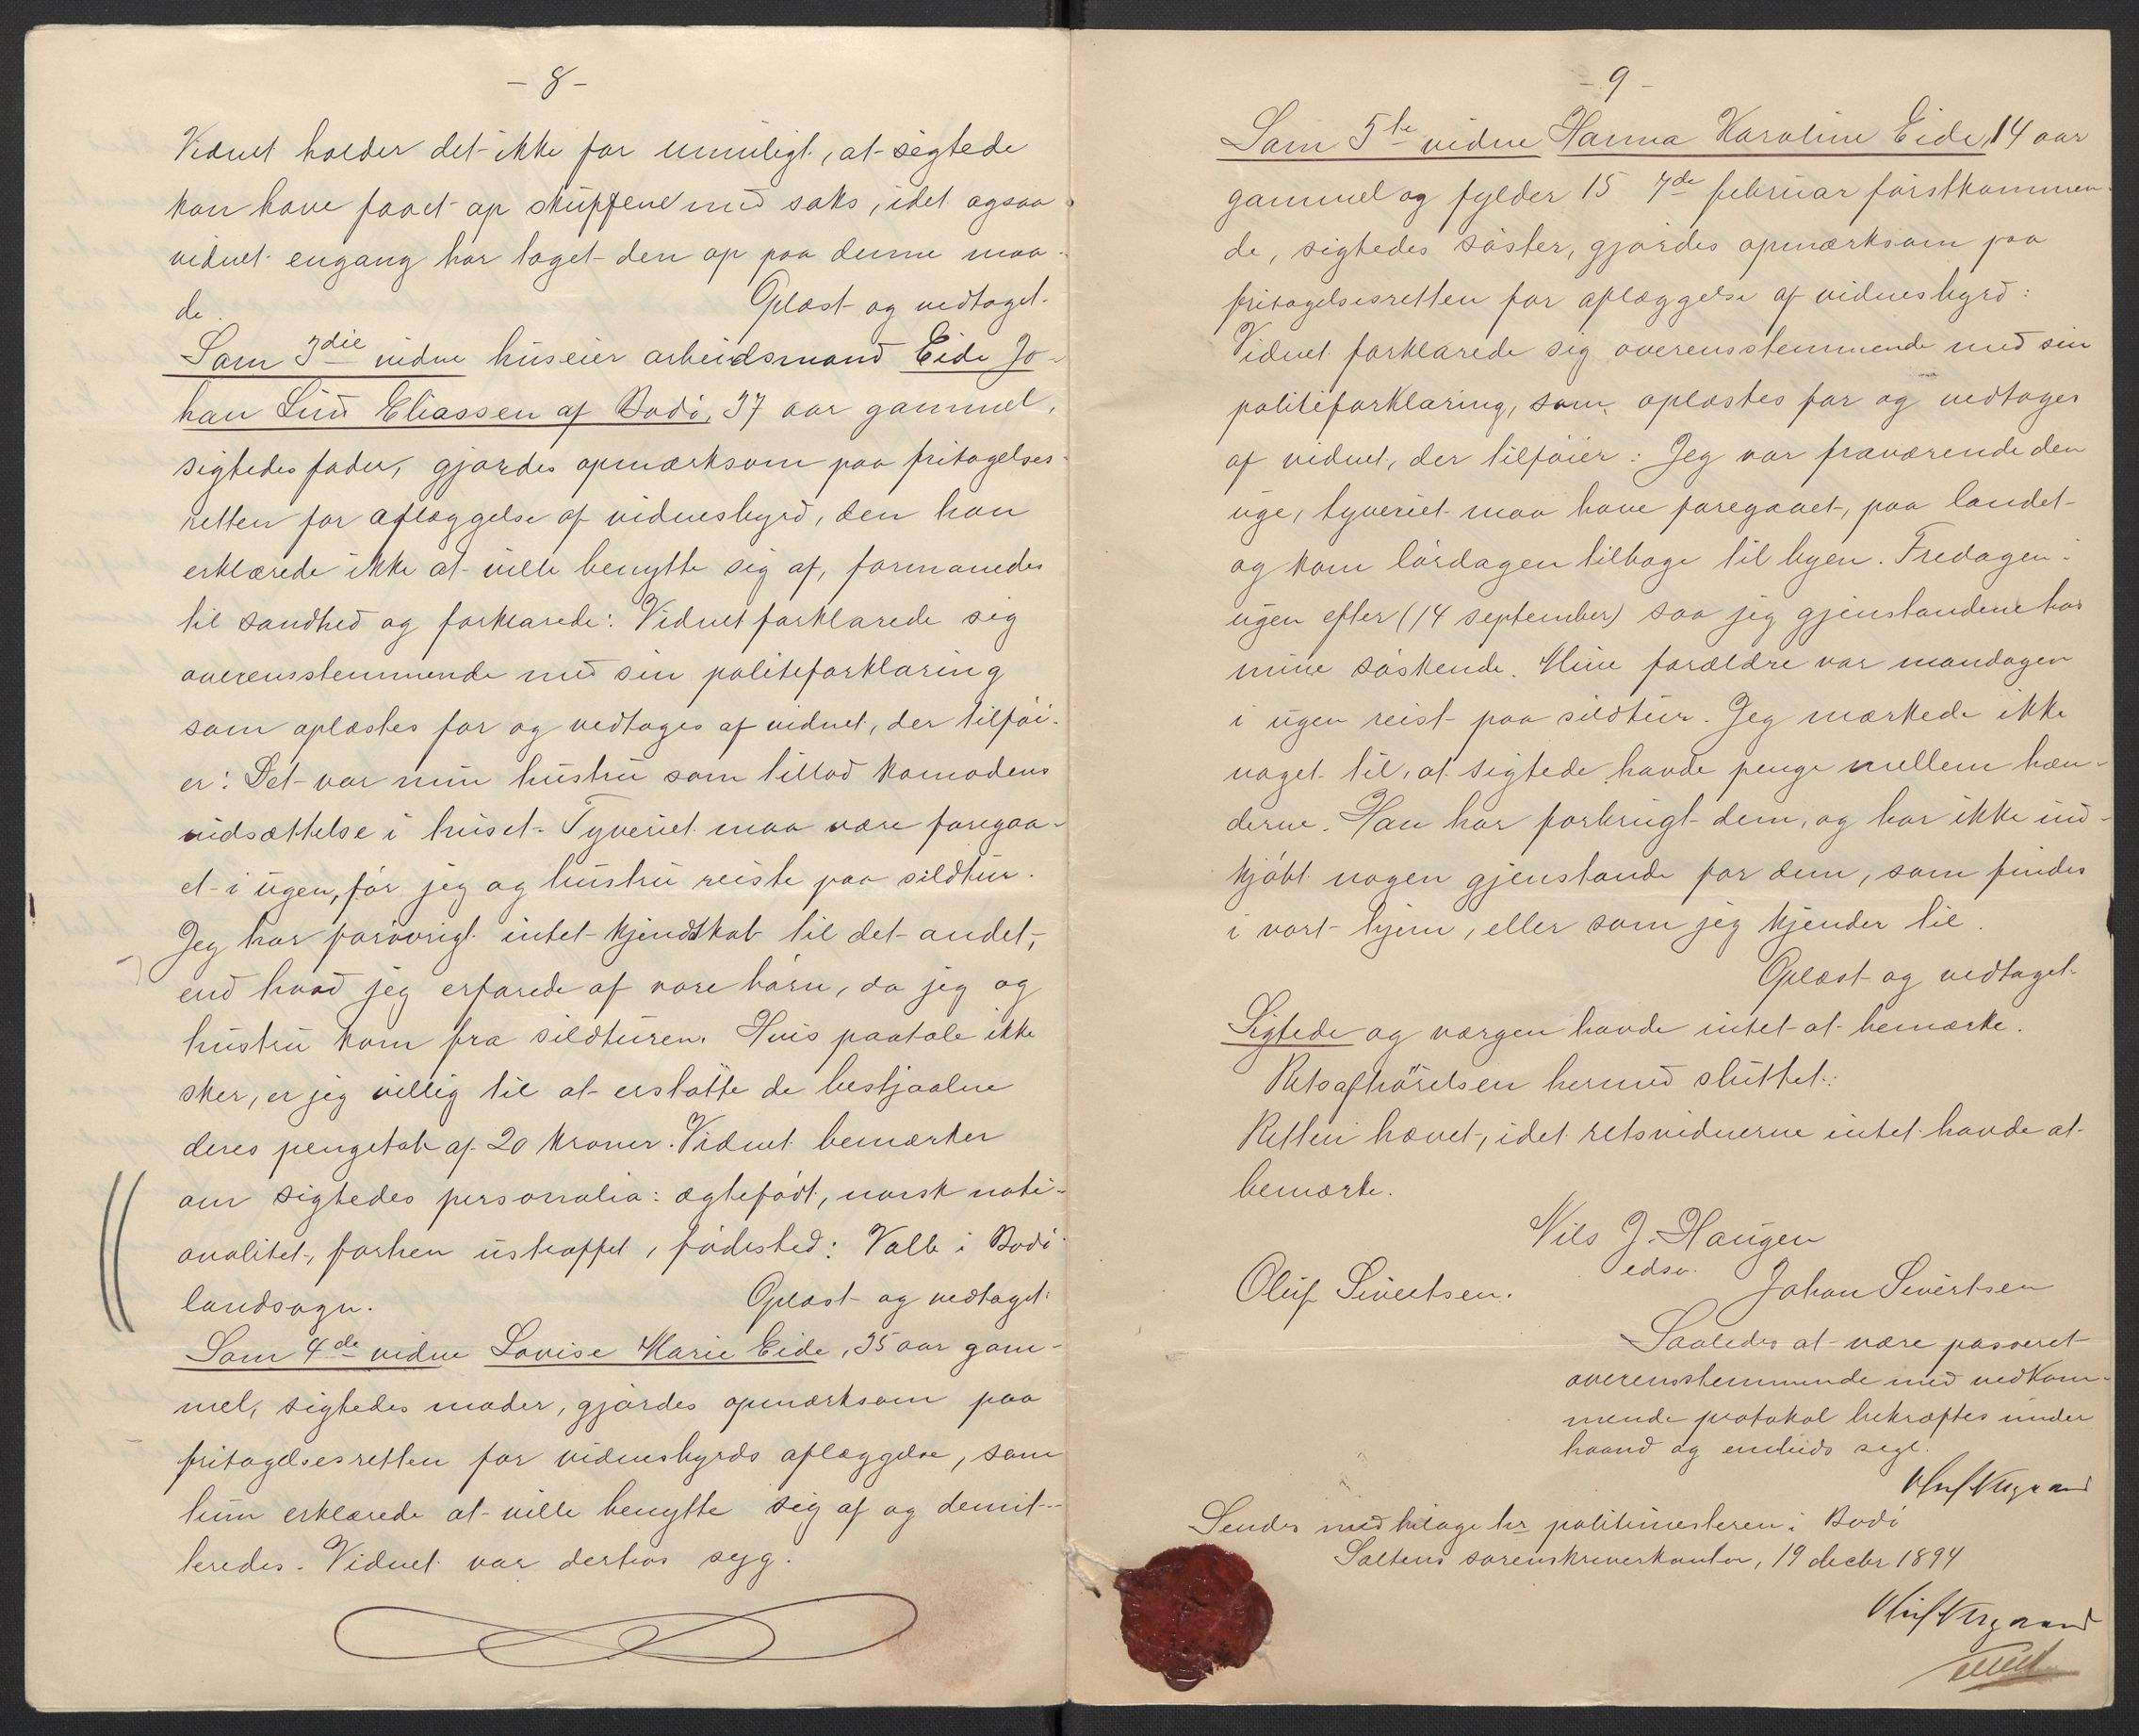 - 8 -
Vidnet holder det ikke for umuligt, at sigtede
kan have faaet op skuffene med saks, idet ogsaa
vidnet engang har taget den op paa denne maa-
de. Oplæst og vedtaget.
Som 3die vidne huseier arbeidsmand Eide Jo-
han Lud Eliassen af Bodö, 37 aar gammel,
sigtedes fader, gjordes opmærksom paa fritagelses-
retten for aflæggelse af vidnesbyrd, den han
erklærede ikke at ville benytte sig af, formanedes
til sandhed og forklarede: Vidnet forklarede sig
overensstemmende med sin politiforklaring
som oplæstes for og vedtoges af vidnet, der tilföi-
er: Det var min hustru som tillod komodens
indsættelse i huset. Tyveriet maa være foregaa-
et i ugen, för jeg og hustru reiste paa sildtur.
Jeg har forövrigt intet kjendskab til det andet,
end hvad jeg erfarede af vore börn, da jeg og
hustru kom fra sildturen. Hvis paatale ikke
sker, er jeg villig til at erstatte de bestjaalne
deres pengetab af 20 kroner. Vidnet bemærker
om sigtedes personalia: ægtefödt, norsk nati-
onalitet, forhen ustraffet, födested: Valle i Bodö
landsogn. Oplæst og vedtaget.
Som 4de vidne Lovise Marie Eide, 35 aar gam-
mel, sigtedes moder, gjordes opmærksom paa
fritagelsesretten for vidnesbyrds aflæggelse, som
hun erklærede at ville benytte sig af og demit-
teredes. Vidnet var derhos syg.
- 9 -
Som 5te vidne Hanna Karoline Eide, 14 aar
gammel og fylder 15 7de februar förstkommen-
de, sigtedes söster, gjordes opmærksom paa
fritagelsesretten for aflæggelse af vidnesbyrd:
Vidnet forklarede sig overensstemmende med sin
politiforklaring, som oplæstes for og vedtoges
af vidnet, der tilföier: Jeg var fraværende den
uge, tyveriet maa have foregaaet, paa landet
og kom lördagen tilbage til byen. Fredagen i
ugen efter (14 september) saa jeg gjenstandene hos
mine söskende. Mine forældre var mandagen
i ugen reist paa sildtur. Jeg mærkede ikke
noget til, at sigtede havde penge mellem hæn-
derne. Han har forbrugt dem, og har ikke ind-
kjöbt nogen gjenstande for dem, som findes
i vort hjem, eller som jeg kjender til.
Oplæst og vedtaget.
Sigtede og værgen havde intet at bemærke.
Retsafhörelsen hermed sluttet.
Retten hævet, idet retsvidnerne intet havde at
bemærke.
Nils J. Haugen
edsv.
Oluf Sivertsen. Johan Sivertsen
Saaledes at være passeret
overensstemmende med vedkom-
mende protokol bekræftes under
haand og embeds segl.
Sendes med bilage hr politimesteren i Bodö
Saltens sorenskriverkontor, 19 decbr 1894